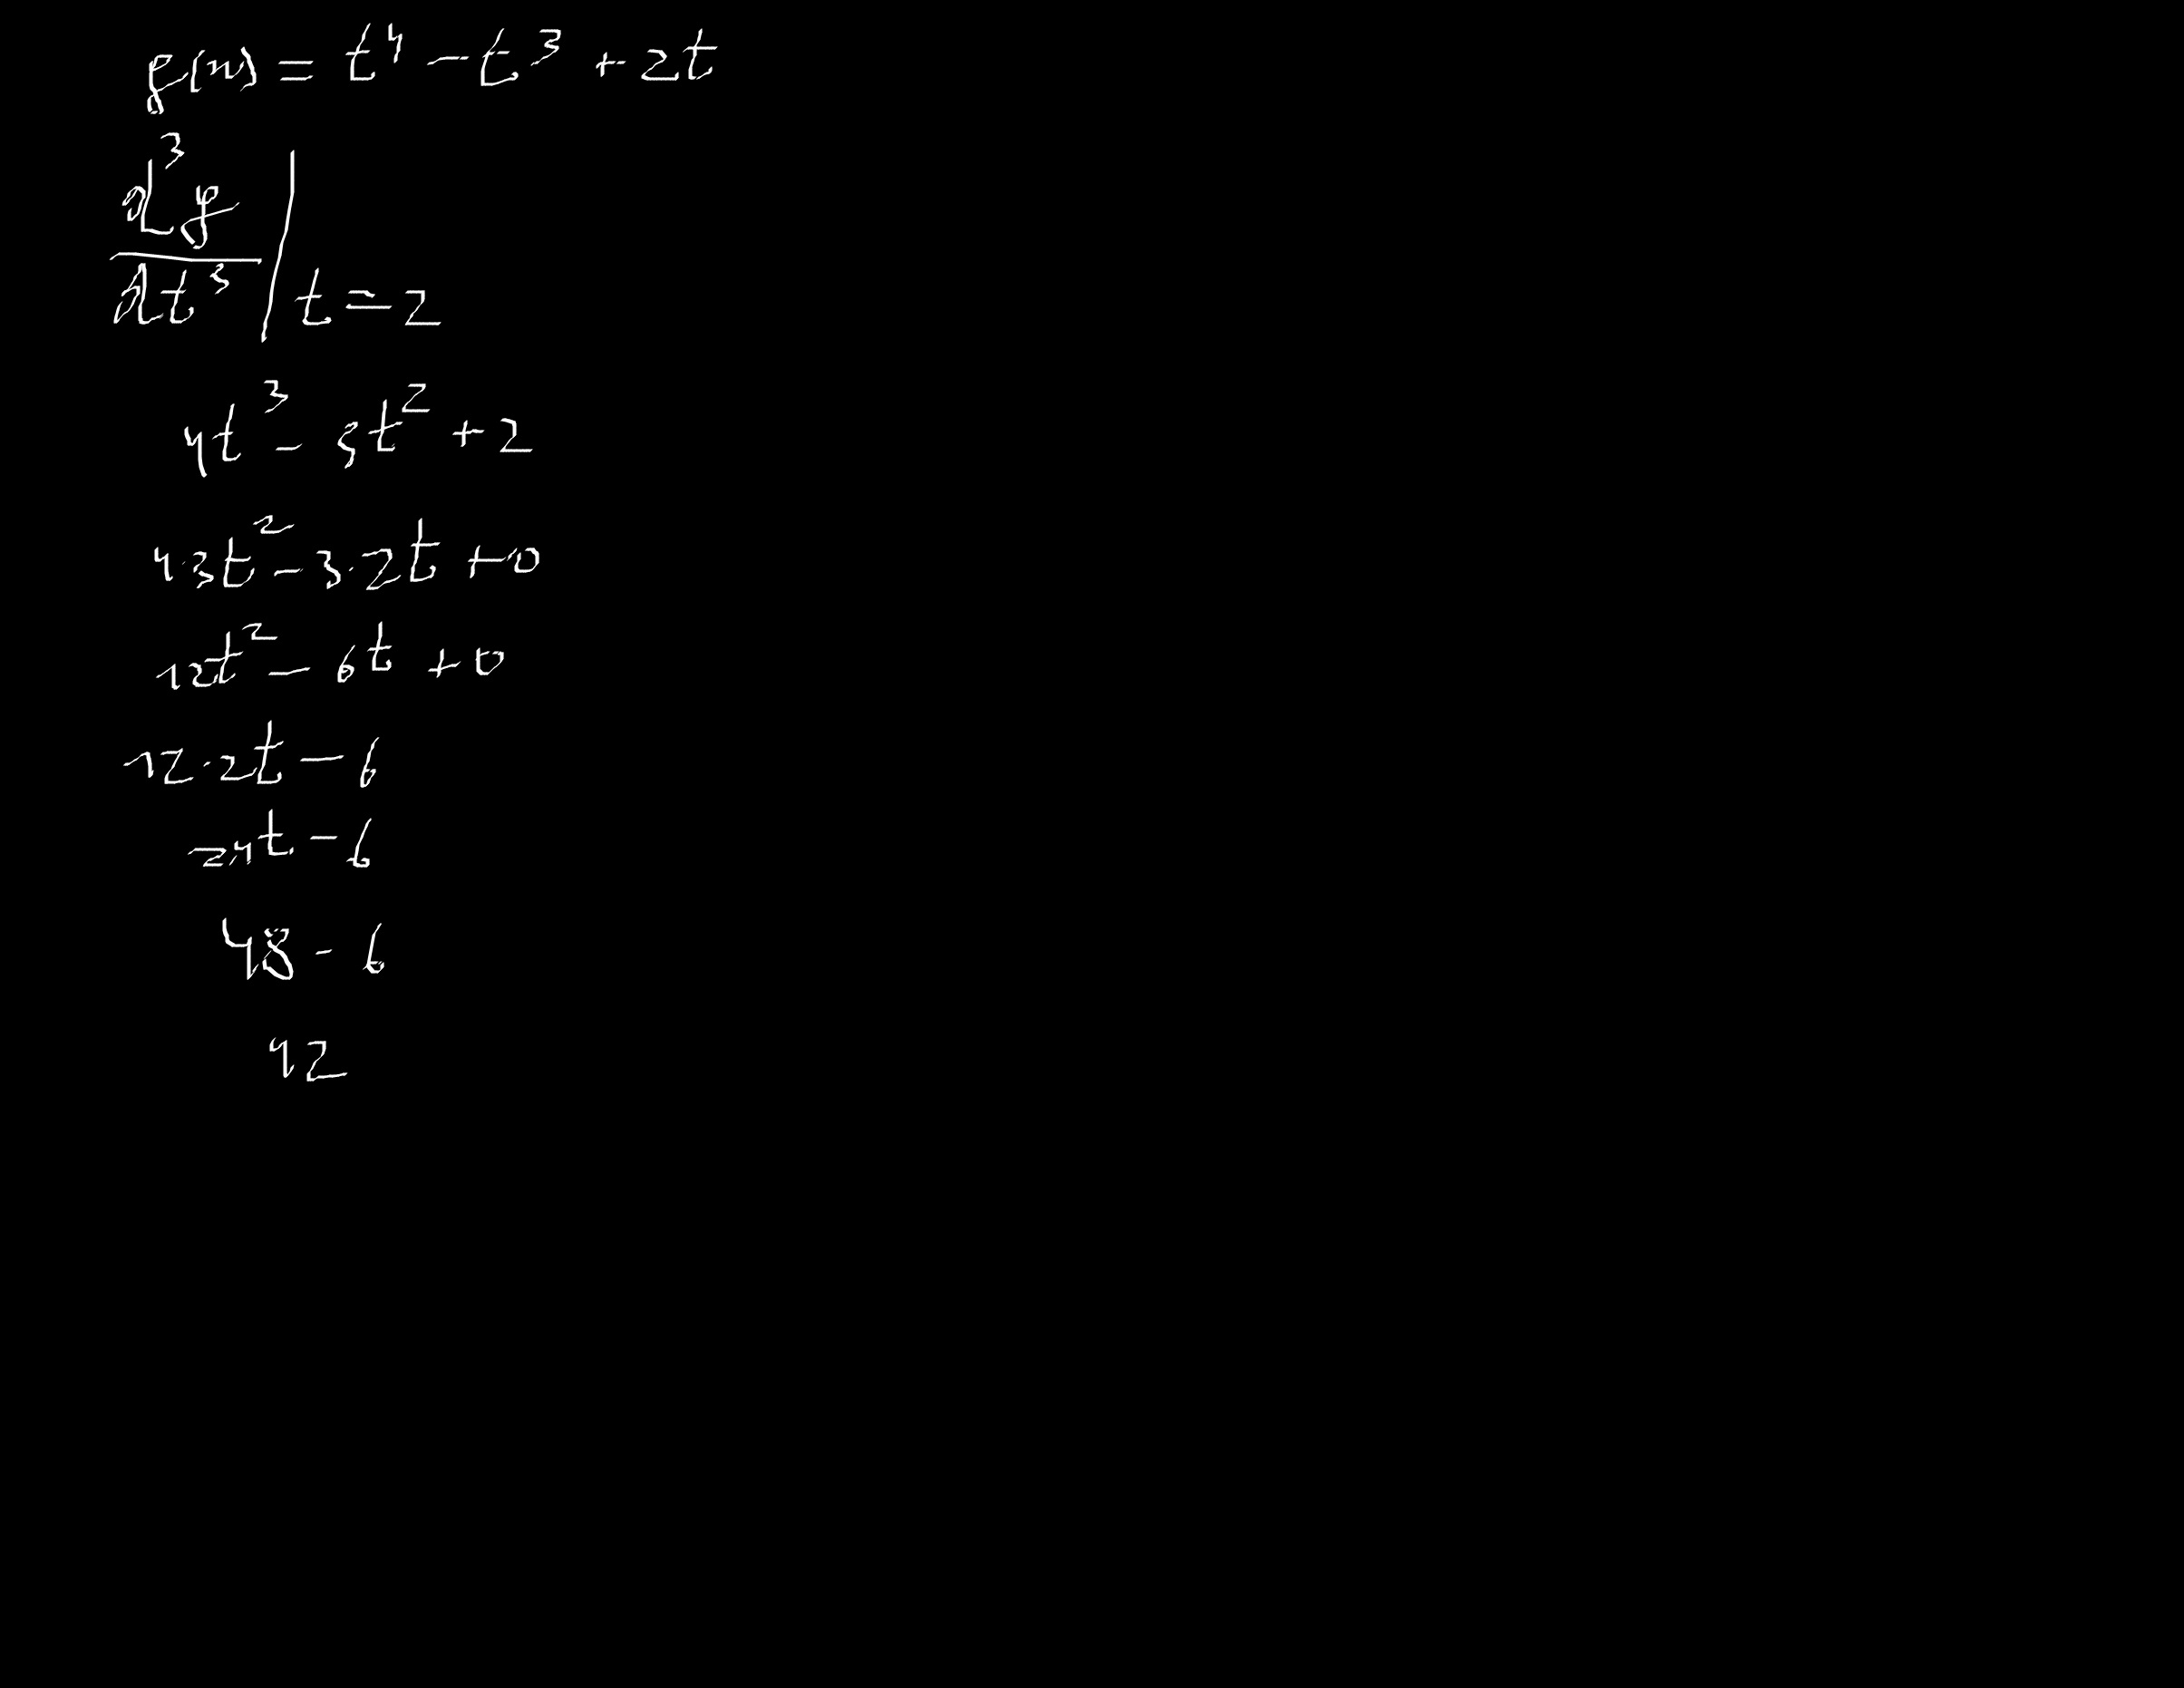 f(n) = t⁴ - t³ + 2t
d³f
dt³ | t = 2
4t³ - 3t² + 2
4·3t² - 3·2t + 0
12t² - 6t + 0
12·2t - 6
24t - 6
48 - 6
42